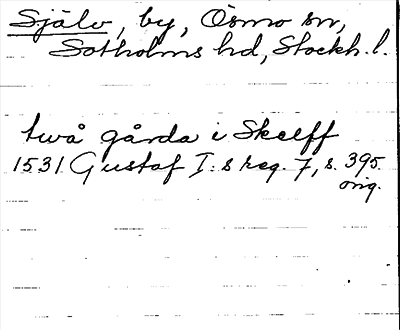 Själv, by, Ösmo sn,
Sotholms hd, Stockh. l.
två gårda i Skelff
1531 Gustaf I:s reg. 7, s. 395.
orig.